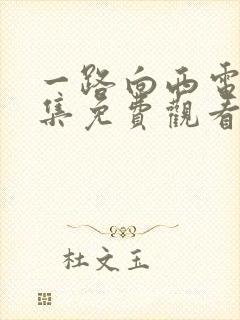 一路向西電
集免費觀看
杜文玉